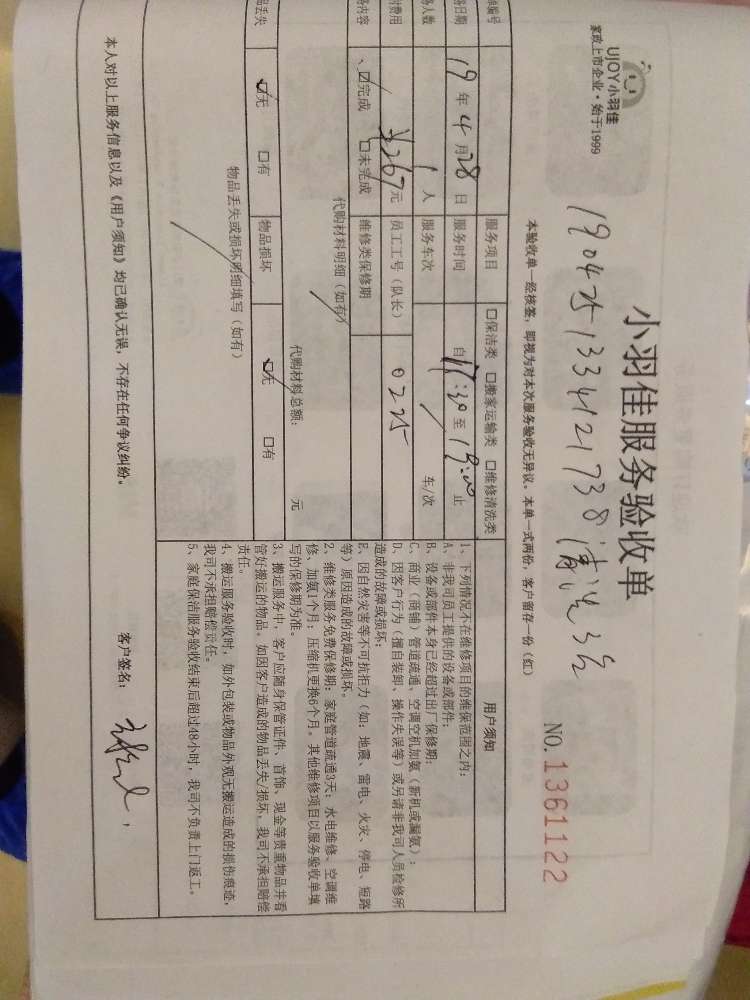 UJOY小羽佳
家政上市企业·始于1999
小羽佳服务验收单
1904251334121738清洗3台
NO.1361122
本验收单一经核签，即视为对本次服务验收无异议。本单一式两份，客户留存一份（红）
单编号
服务项目 口保洁类 口搬家运输类 口维修清洗类
务日期 19年4月28日 服务时间 自17:30至19:00止
务人数 1人 服务车次 / 车/次
付费用 ¥267元 员工工号（队长） 0225
务内容 、☑完成 口未完成 维修类保修期
代购材料明细（如有）
代购材料总额： 元
品丢失 ☑无 口有 物品损坏 ☑无 口有
物品丢失或损坏明细填写（如有）
用户须知
1、下列情况不在维修项目的维保范围之内：
A、非我司员工提供的设备或部件；
B、设备或部件本身已经超过出厂保修期；
C、商业（商铺）管道疏通、空调空机加氨（新机或漏氨）；
D、因客户行为（擅自装卸、操作失误等）或另请非我司人员检修所
造成的故障或损坏；
E、因自然灾害等不可抗拒力（如：地震、雷电、火灾、停电、短路
等）原因造成的故障或损坏。
2、维修类服务免费保修期：家庭管道疏通3天；水电维修、空调维
修、加氨1个月；压缩机更换6个月。其他维修项目以服务验收单填
写的保修期为准。
3、搬运服务中，客户应随身保管证件、首饰、现金等贵重物品并看
管好搬运的物品。如因客户造成的物品丢失/损坏，我司不承担赔偿
责任。
4、搬运服务验收时，如外包装或物品外观无搬运造成的损伤痕迹，
我司不承担赔偿责任。
5、家庭保洁服务验收结束后超过48小时，我司不负责上门返工。
本人对以上服务信息以及《用户须知》均已确认无误，不存在任何争议纠纷。
客户签名：